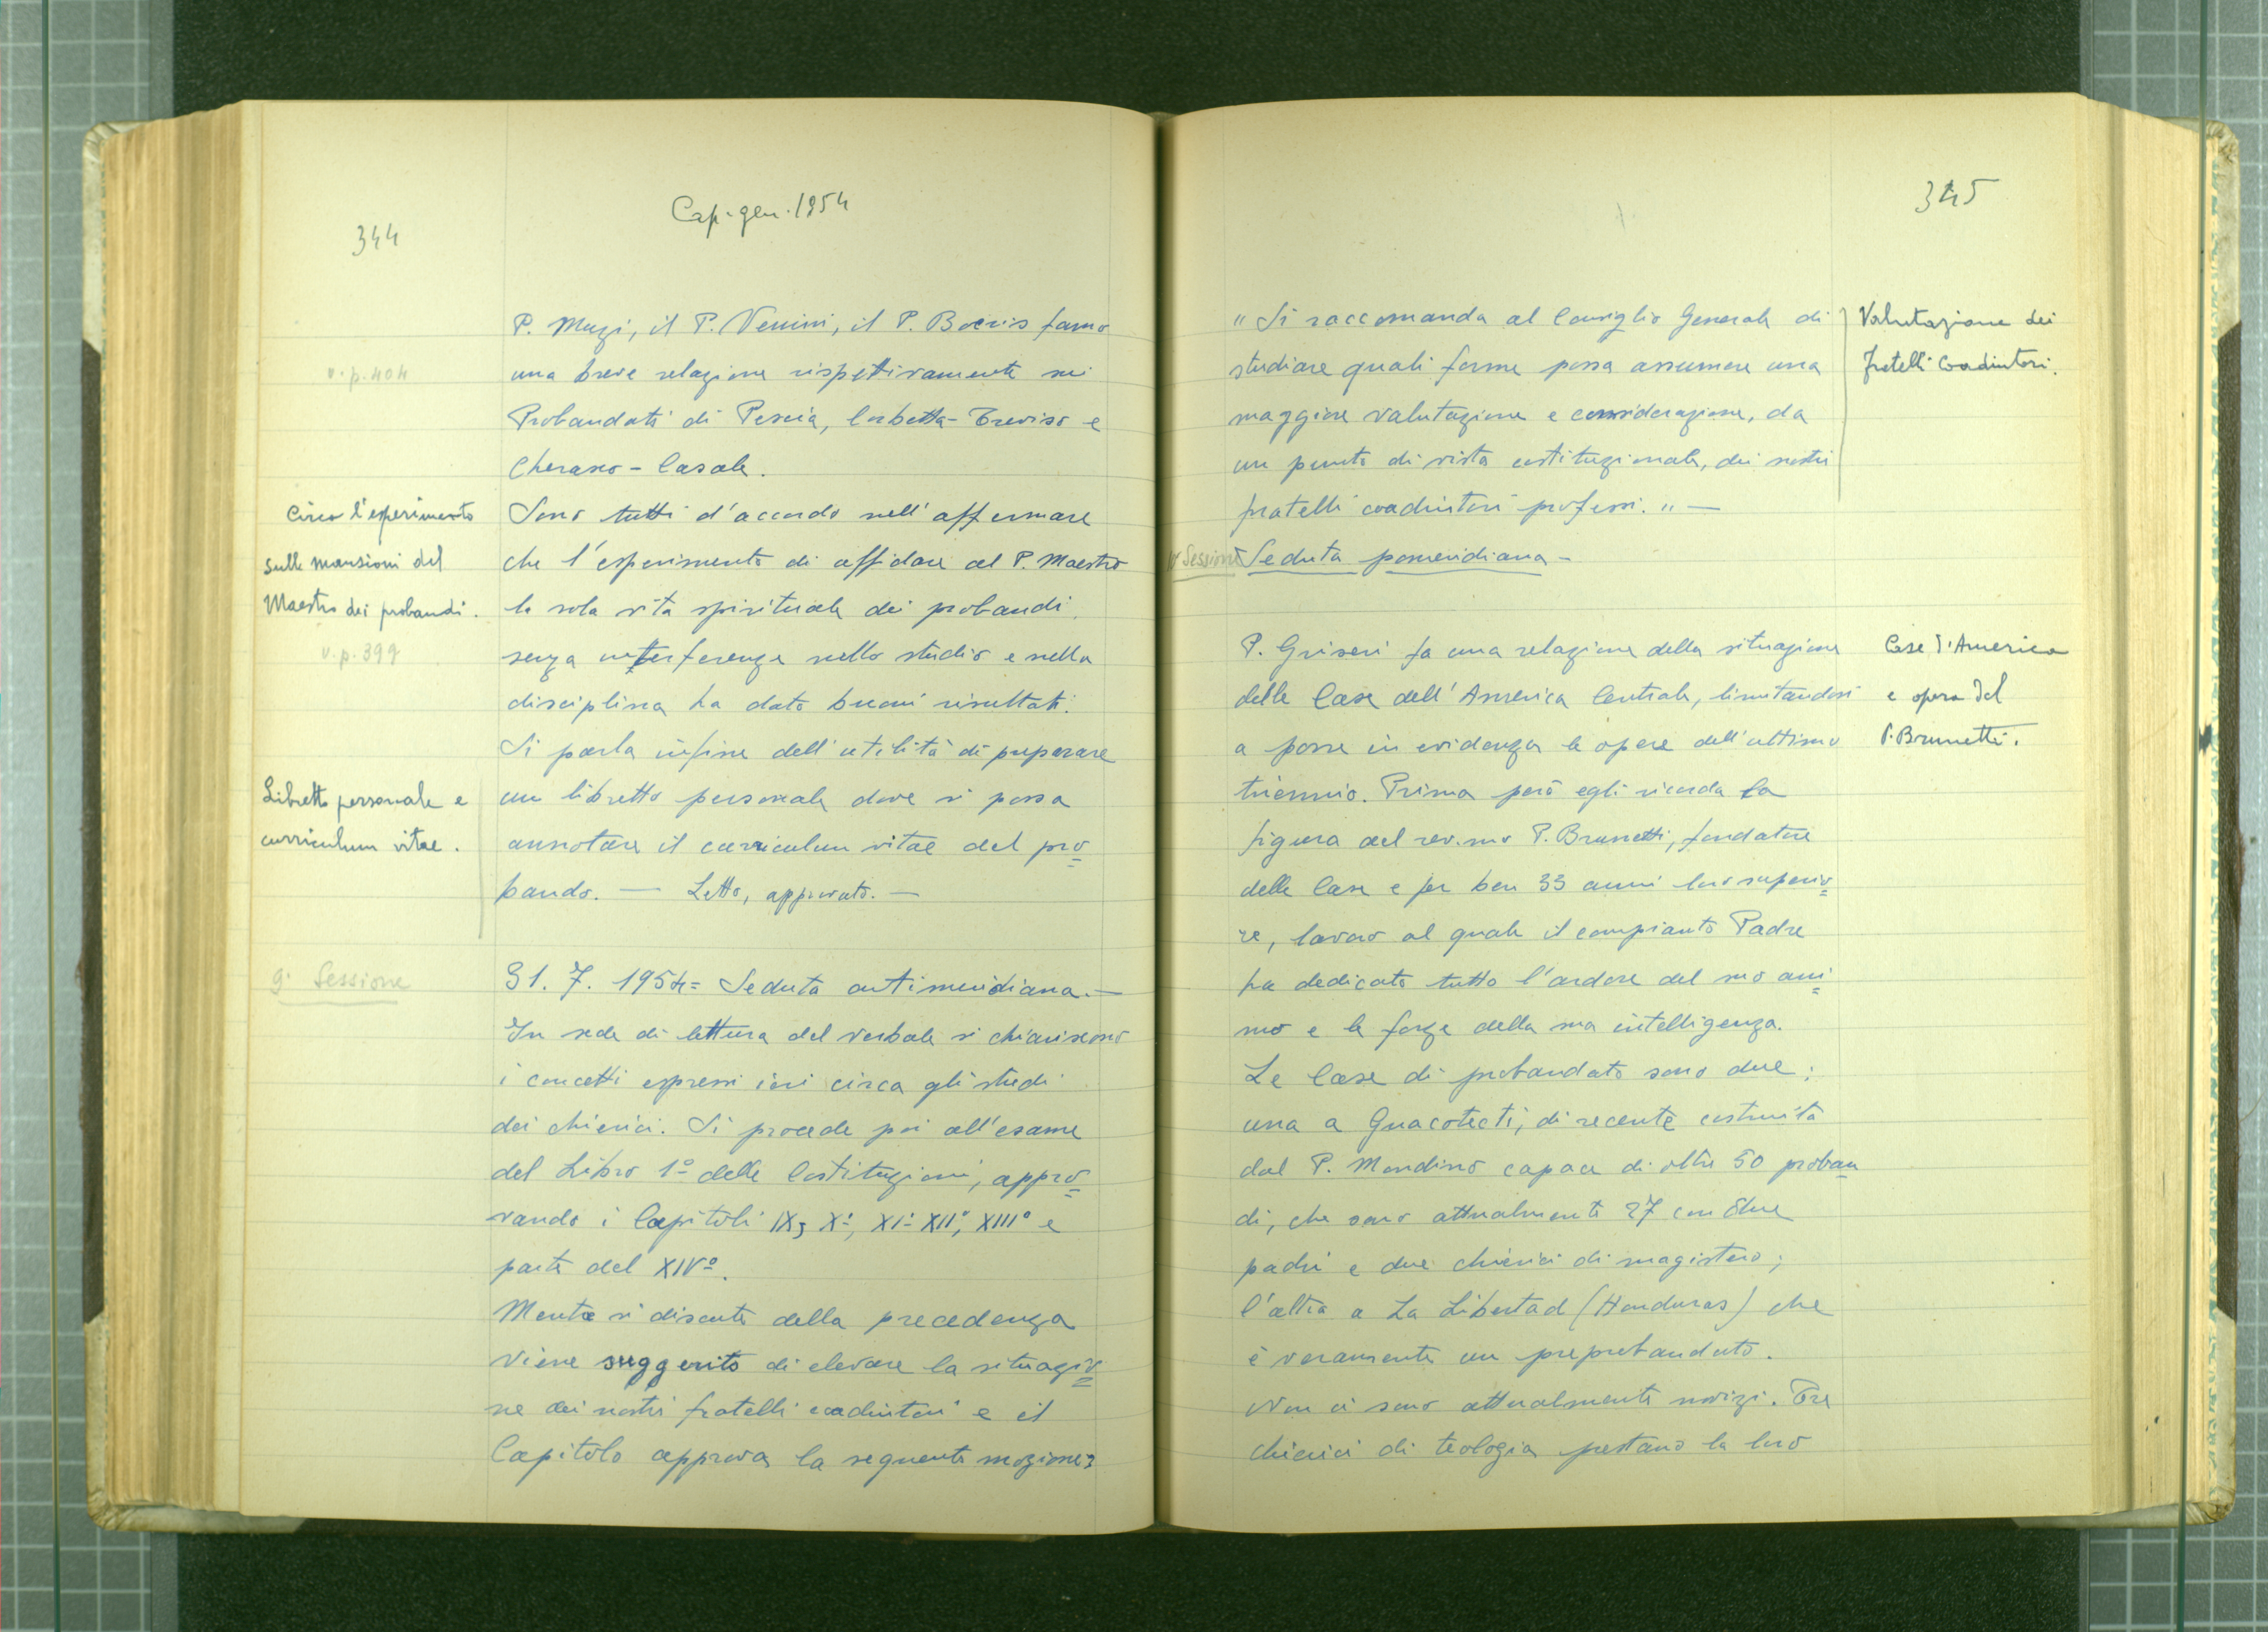 344
Cap. gen. 1954
P. Muzi, il P. Venini, il P. Boeris fanno
v. p. 404
una breve relazione rispettivamente sui
Probandati di Pescia, Corbetta-Treviso e
Cherasco-Casale.
Circa l'esperimento
sulle mansioni del
Maestro dei probandi.
v. p. 399
Sono tutti d'accordo nell'affermare
che l'esperimento di affidare al P. Maestro
la sola vita spirituale dei probandi
senza interferenze nello studio e nella
disciplina ha dato buoni risultati.
Si parla infine dell'utilità di preparare
Libretto personale e
curriculum vitae.
un libretto personale dove si possa
annotare il curriculum vitae del pro=
bando. — Letto, approvato. —
9ª Sessione
31. 7. 1954 = Seduta antimeridiana. —
In sede di lettura del verbale si chiariscono
i concetti espressi ieri circa gli studi
dei chierici. Si procede poi all'esame
del Libro 1º delle Costituzioni, appro=
vando i Capitoli IX, Xº, XIº XIIº, XIIIº e
parte del XIVº.
Mentre si discute della precedenza
viene suggerito di elevare la situazio=
ne dei nostri fratelli coadiutori e il
Capitolo approva la seguente mozione:
345
"Si raccomanda al Consiglio Generale di
studiare quali forme possa assumere una
maggiore valutazione e considerazione, da
un punto di vista costituzionale, dei nostri
fratelli coadiutori professi." —
Valutazione dei
fratelli Coadiutori.
10ª Sessione Seduta pomeridiana —
P. Griseri fa una relazione della situazione
delle Case dell'America Centrale, limitandosi
a porre in evidenza le opere dell'ultimo
Case d'America
e opera del
P. Brunetti.
triennio. Prima però egli ricorda la
figura del rev.mo P. Brunetti, fondatore
delle Case e per ben 33 anni loro superio=
re, lavoro al quale il compianto Padre
ha dedicato tutto l'ardore del suo ani=
mo e le forze della sua intelligenza.
Le Case di probandato sono due:
una a Guacotecti, di recente costruita
dal P. Mondino capace di oltre 50 proban=
di, che sono attualmente 27 con due
padri e due chierici di magistero;
l'altra a La Libertad (Honduras) che
è veramente un preprobandato.
Non ci sono attualmente novizi. Tre
chierici di teologia prestano la loro